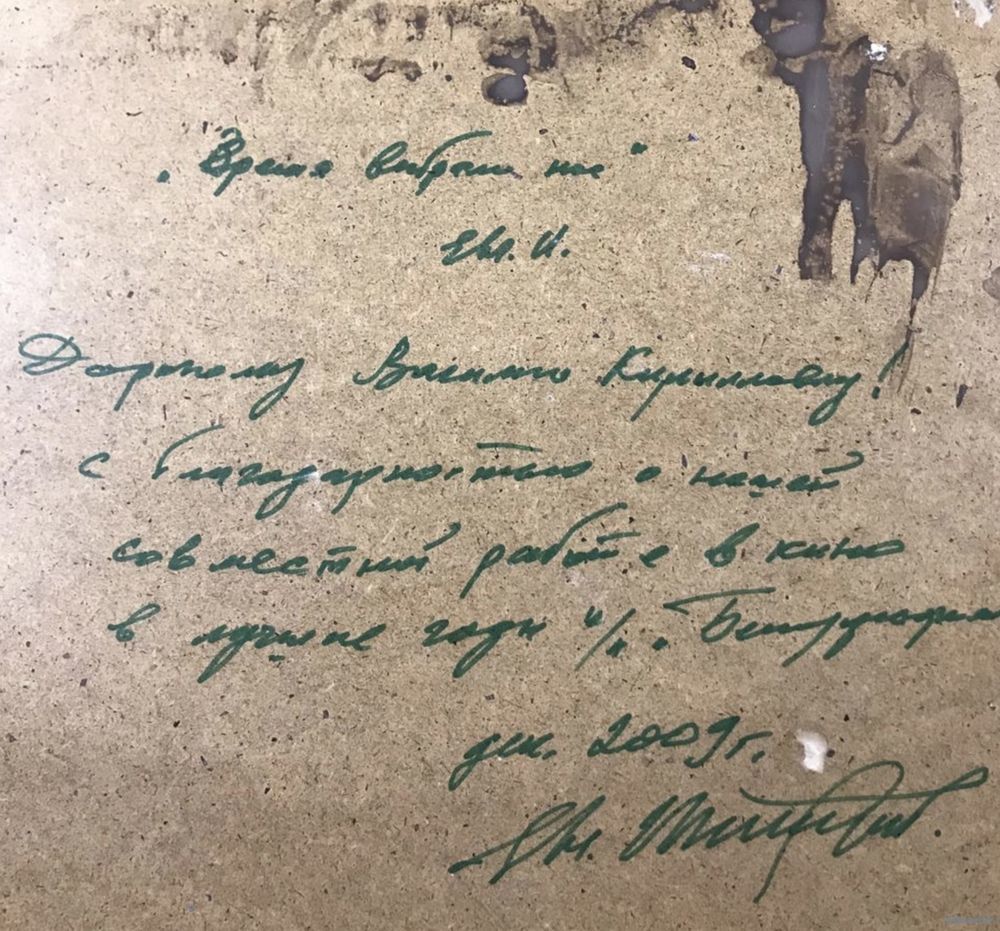 „Время выбрали нас"
Евг. И.
Дорогому Василию Кирилловичу!
с благодарностью о нашей
совместной работе в кино
в лучшие годы к/с. „Беларусьфильм
дек. 2009 г.
Евг.